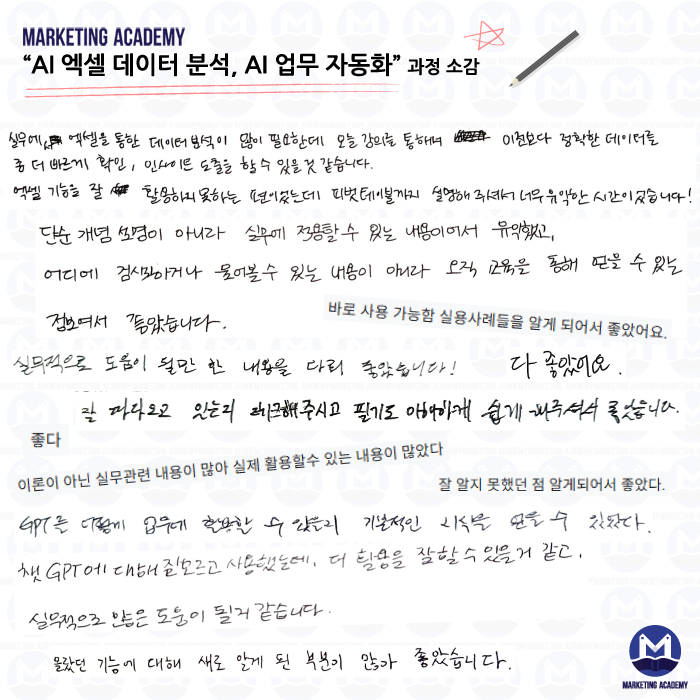 MARKETING ACADEMY
“AI 엑셀 데이터 분석, AI 업무 자동화” 과정 소감
실무에 엑셀을 통한 데이터분석이 많이 필요한데 오늘 강의를 통해서 이전보다 정확한 데이터를
좀 더 빠르게 확인, 인사이트 도출을 할 수 있을 것 같습니다.
엑셀 기능을 잘 활용하지 못하는 편이었는데 피벗테이블까지 설명해주셔서 너무 유익한 시간이었습니다!
단순 개념 설명이 아니라 실무에 적용할 수 있는 내용이어서 유익했고,
어디에 검색하거나 물어볼 수 있는 내용이 아니라 오직 교육을 통해 얻을 수 있는
정보여서 좋았습니다.
바로 사용 가능함 실용사례들을 알게 되어서 좋았어요.
실무적으로 도움이 될만 한 내용을 다뤄 좋았습니다!
다 좋았어요.
잘 따라오고 있는지 체크해주시고 필기도 쉽게 좋았습니다.
좋다
이론이 아닌 실무관련 내용이 많아 실제 활용할수 있는 내용이 많았다
잘 알지 못했던 점 알게되어서 좋았다.
GPT를 어떻게 업무에 활용할 수 있을지 기본적인 지식을 얻을 수 있었다.
챗GPT에 대해 잘모르고 사용했는데, 더 활용을 잘할 수 있을거 같고,
실무적으로 많은 도움이 될거 같습니다.
몰랐던 기능에 대해 새로 알게 된 부분이 많아 좋았습니다.
MARKETING ACADEMY